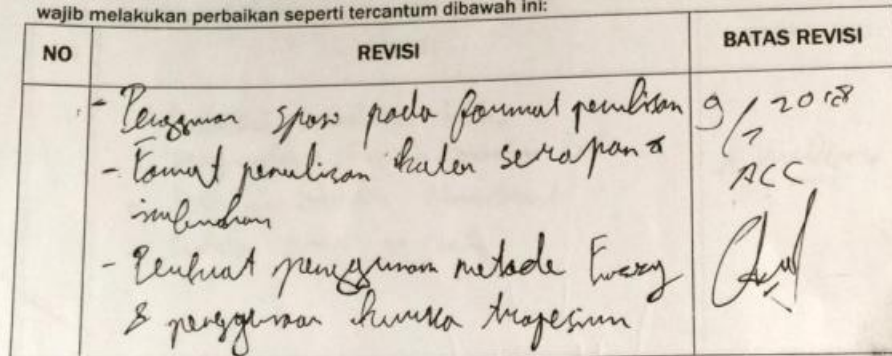 wajib melakukan perbaikan seperti tercantum dibawah ini:
NO REVISI BATAS REVISI
- Penggunaan spasi pada format penulisan
- Format penulisan kata serapan &
- penggunaan metode Fuzzy
& penggunaan kurva trapesium
9/7 2018
ACC